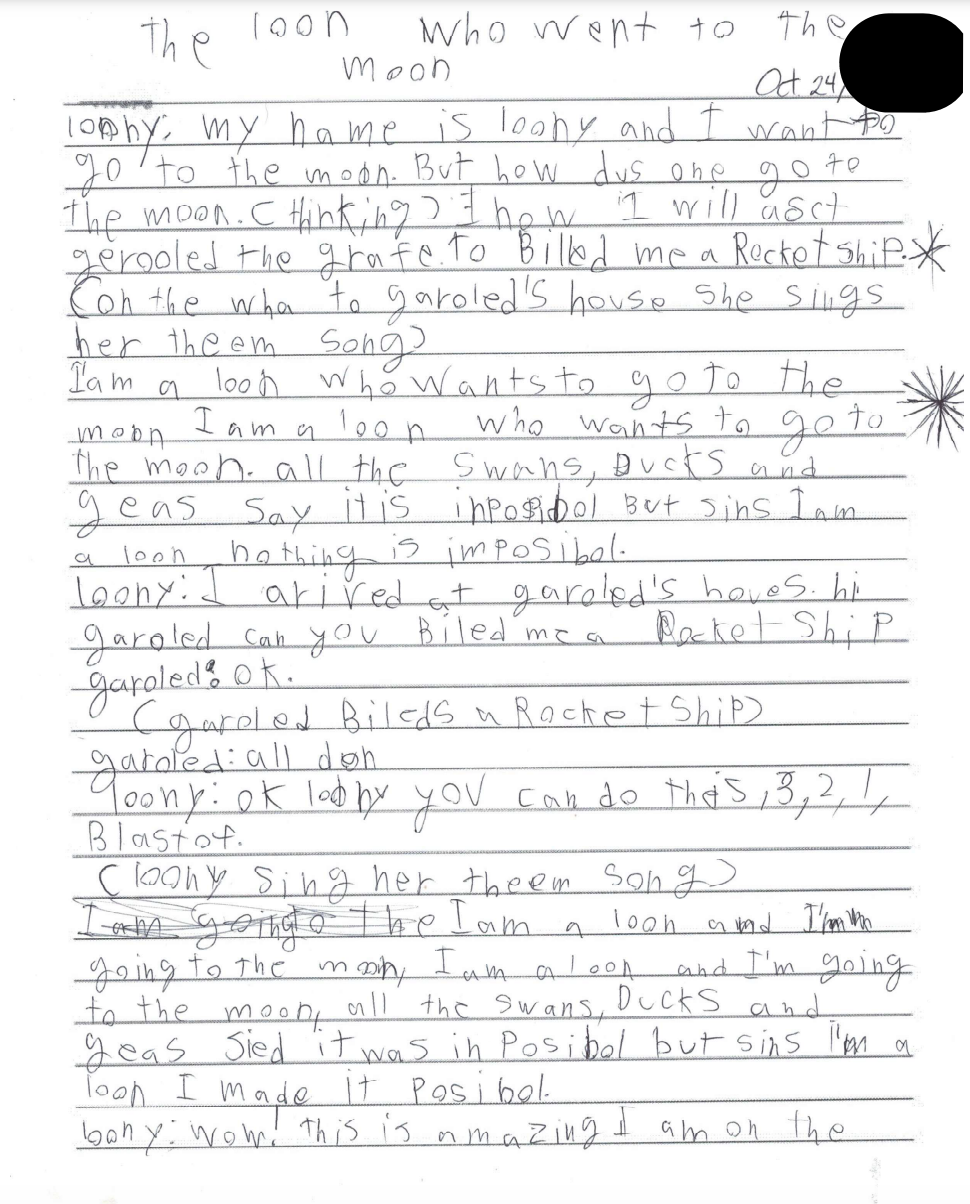 the loon who went to the
moon
Oct. 24,
loony: my name is loony and I want to
go to the moon. But how dus one go to
the moon. (thinking) I now I will asct
gerooled the grafe. to Biled me a Rocket ship.
(on the wha to garoled's house she sings
her theem song)
I'am a loon who wants to go to the
moon I am a loon who wants to go to
the moon. all the Swans, Ducks and
geas say it is inposibol But sins I am
a loon nothing is imposibol.
loony: I arived at garoled's houes. hi
garoled can you Biled me a Rocket Ship
garoled: ok.
(garoled Bileds a Rocket Ship)
garoled: all don
loony: ok loony you can do this, 3, 2, 1,
Blastof.
(loony sing her theem song)
I am a loon and I'm
going to the moon, I am a loon and I'm going
to the moon, all the swans, Ducks and
geas sied it was in Posibol but sins I'm a
loon I made it Posibol.
loony: wow! this is amazing I am on the